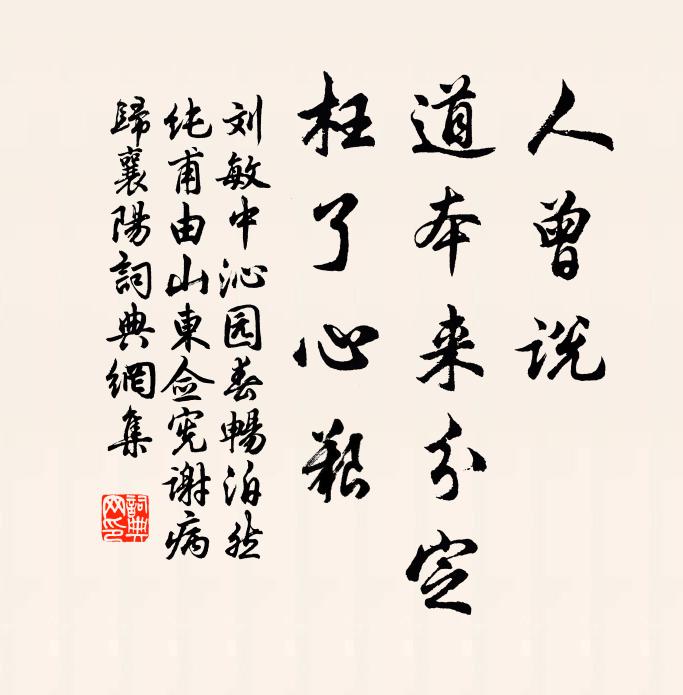 人曾说
道本来分定
枉了心艱
刘敏中沁园春暢泊然
纯甫由山東佥宪谢病
歸襄陽詞典網集
詞典
网印